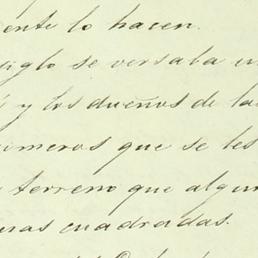 ente lo hacen.
siglo se versaba un
y los dueños de las
rimeros que se les
terreno que algun
uras cuadradas.